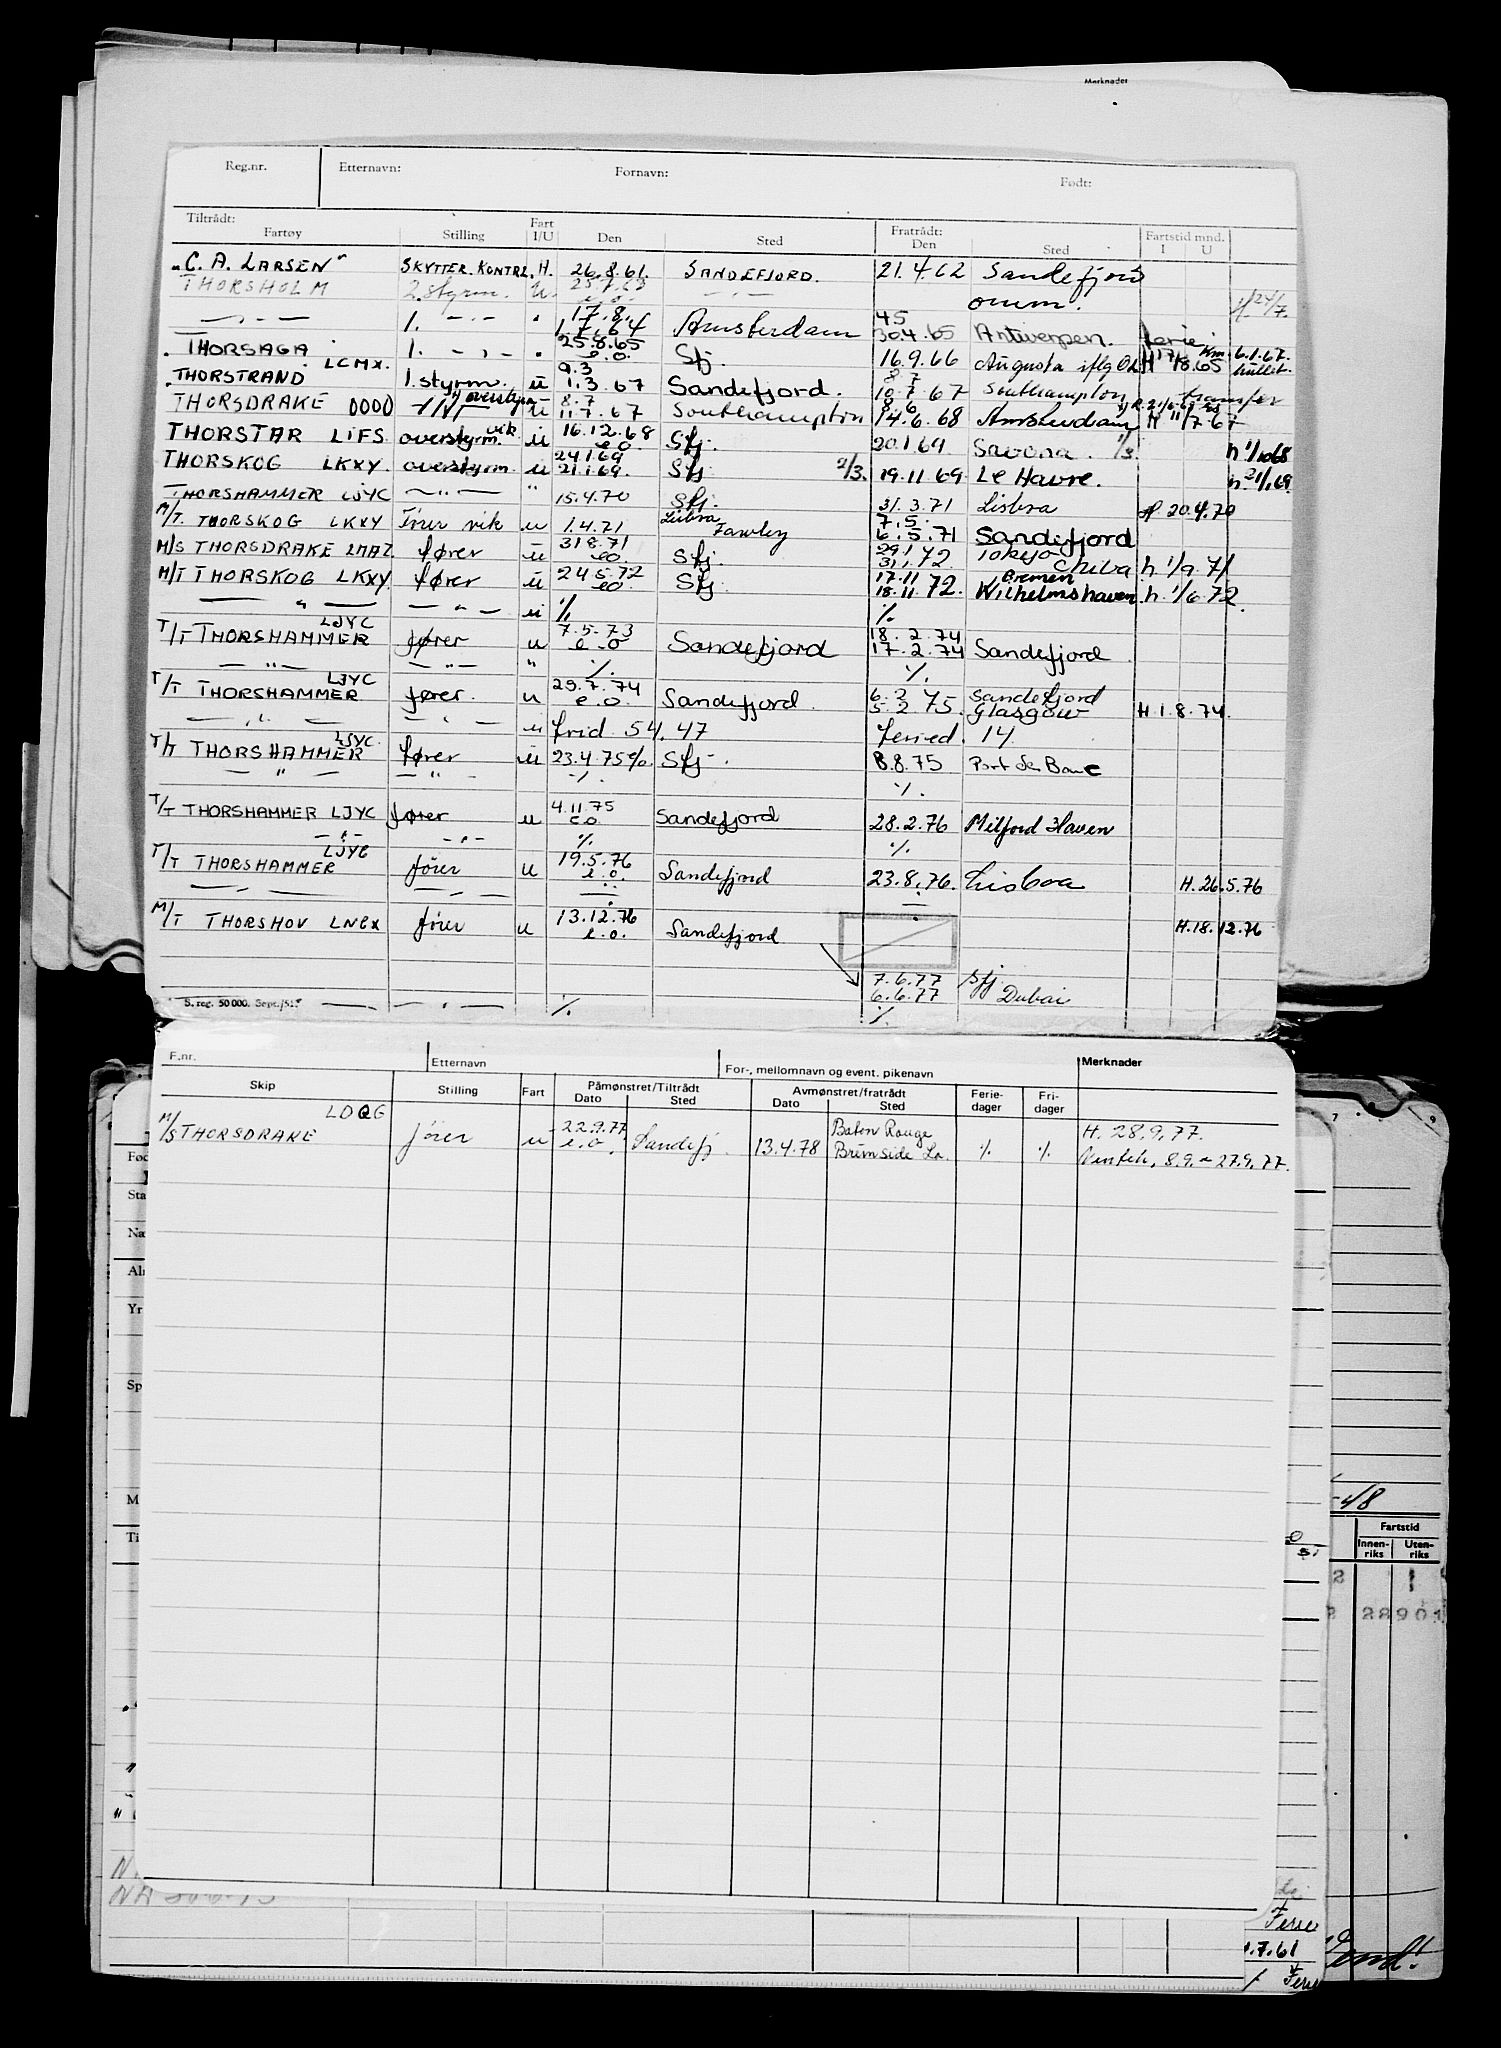 Merknader
Reg.nr. Etternavn: Fornavn: Født:
Tiltrådt: Fratrådt:
Fartøy Stilling Fart I/U Den Sted Den Sted Fartstid mnd. I U
"C. A. LARSEN" SKYTTER. KONTRL. H. 26.8.61. SANDEFJORD. 21.4.62 Sandefjord
THORSHOLM 2. styrm. U. e.o. - " - omm. 24/7.
- " - 1. - " - " 17.8. 1.7.64 Amsterdam 45 30.4.65 Antwerpen. ferie
THORSAGA LCMX. 1. - " - " 25.8.65 e.o. Sfj. 16.9.66 Augusta H 17/8.65 6.1.67.
THORSTRAND 1. styrm. u 9.3 1.3.67 Sandefjord. 8.7 10.7.67 Southampton transfer
THORSDRAKE overstyrm u 8.7 11.7.67 Southampton 8.6 14.6.68 Amsterdam H 11/7-67
THORSTAR LIFS overstyrm. vik. u 16.12.68 e.o. Sfj. 20.1.69 Savona. 1/3. h 1/1068
THORSKOG LKXY overstyrm. u 24.1.69 21.1.69. Sfj 2/3. 19.11.69 Le Havre. h. 21/1.69.
THORSHAMMER LJYC - " - " 15.4.70 Sfj. 31.3.71 Lisboa H 20.4.70
M/T. THORSKOG LKXY Fører vik u 1.4.71 Lisboa Fawley 7.5. 6.5.71 Sandefjord
M/S THORSDRAKE fører u 31.8.71 eo Sfj. 29.1 31.1.72 Tokyo Chiba h. 1/9.71
M/T THORSKOG LKXY. fører u 24.5.72 eo Sfj. 17.11 18.11.72. Bremen Wilhelmshaven. h. 1/6.72.
- " - - " - u % %
T/T THORSHAMMER LJYC fører u 7.5.73 e.o Sandefjord 18.2.74 17.2.74 Sandefjord.
- " - - " - " % %
T/T THORSHAMMER LJYC fører. u 29.7.74 e.o. Sandefjord. 6.2 5.2 75. Sandefjord Glasgow H. 1.8.74.
- " - - " - u frid. 54.47 feried. 14.
T/T THORSHAMMER LJYC. fører u 23.4.75 e/o. Sfj-. 8.8.75 Port de Bouc
- " - - " - % %
T/T THORSHAMMER LJYC fører u 4.11.75 e.o. Sandefjord 28.2.76 Milford Haven
- " - - " - % %
T/T THORSHAMMER LJYC fører u 19.5.76 e.o. Sandefjord 23.8.76. Lisboa H. 26.5.76
- " - - " -
M/T THORSHOV LNCX fører u 13.12.76 e.o. Sandefjord H.18.12.76
7.6.77 Sfj.
6.6.77 Dubai
S. reg. 50 000. Sept./51. - " - % %
F.nr. Etternavn For-, mellomnavn og event. pikenavn Merknader
Skip Stilling Fart Påmønstret/Tiltrådt Dato Sted Avmønstret/fratrådt Dato Sted Feriedager Fridager
M/S THORSDRAKE fører u 22.9.77 e.o. Sandefj. 13.4.78 Baton Rouge Brimside La. % % H. 28.9.77.
8.9. - 27.9.77.
Fartstid
Innenriks Utenriks
28901
-48
Ferie
.7.61
Ferie